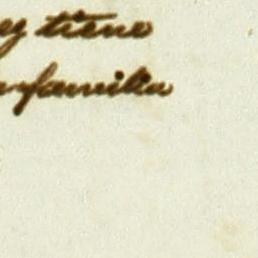 ey tiene
familia